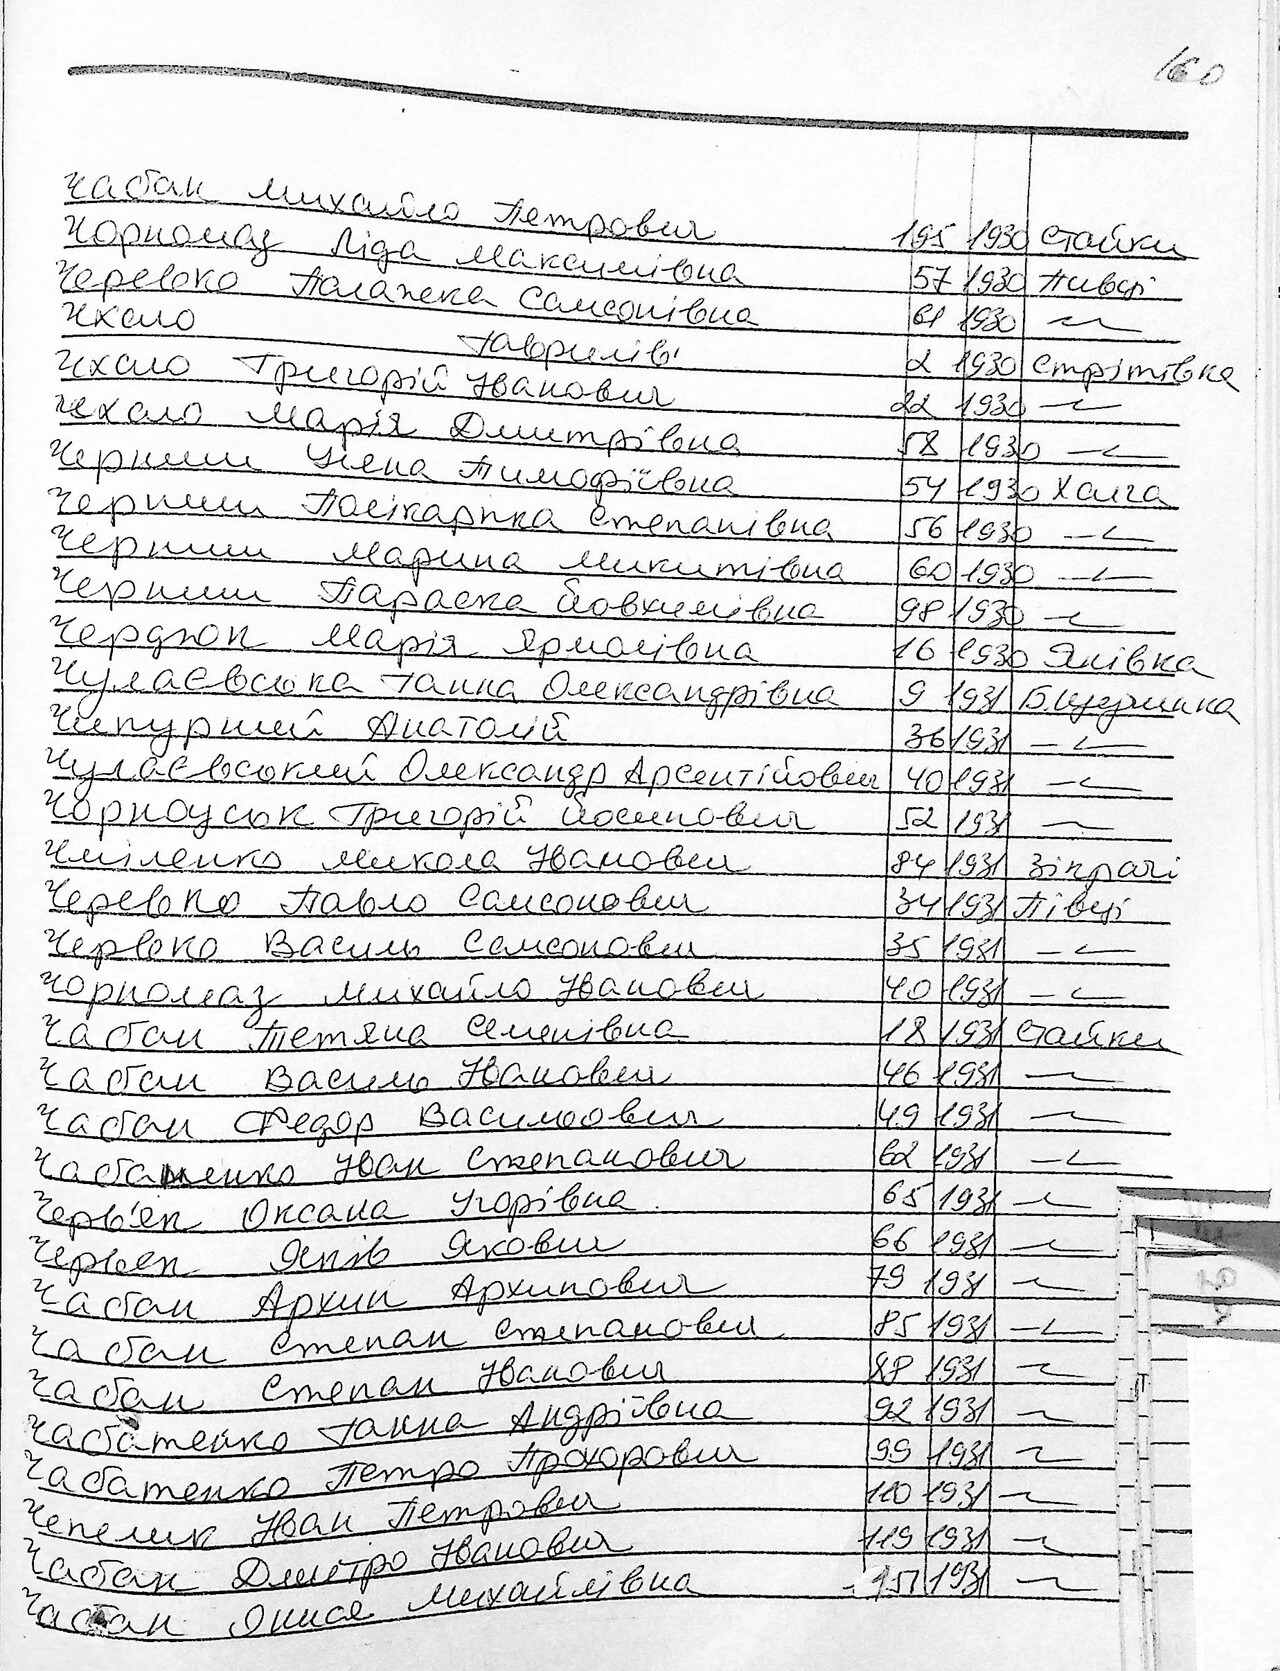 160
Чабан Михайло Петрович 195 1930 Стайки
Чорномаз Ліда Максимівна 57 1930 Пивці
Черевко Палажека Самсонівна 61 1930 —〃—
Чхало Гаврилів 2 1930 Стрітівка
Чхало Григорій Іванович 22 1930 —〃—
Чехало Марія Дмитрівна 58 1930 —〃—
Черниш Уляна Тимофіївна 54 1930 Халча
Черниш Полікарпка Степанівна 56 1930 —〃—
Черниш Марина Микитівна 60 1930 —〃—
Черниш Параска Йовхимівна 98 1930 —〃—
Чердюк Марія Ярмолівна 16 1930 Янівка
Чулаєвська Ганна Олександрівна 9 1931
Чипурний Анатолій 36 1931 —〃—
Чулаєвський Олександр Арсентійович 40 1931 —〃—
Чорноуськ Григорій Йосипович 52 1931 —〃—
Чміленко Микола Іванович 84 1931 Зікрачі
Черевко Павло Самсонович 34 1931 Півці
Червоко Василь Самсонович 35 1931 —〃—
Чорномаз Михайло Іванович 40 1931 —〃—
Чабан Тетяна Семенівна 18 1931 Стайки
Чабан Василь Іванович 46 1931 —〃—
Чабан Федор Васильович 49 1931 —〃—
Чабаненко Іван Степанович 62 1931 —〃—
Черв'як Оксана Ігорівна 65 1931 —〃—
Червяк Яків Якович 66 1931 —〃—
Чабан Архип Архипович 79 1931 —〃—
Чабан Степан Степанович 85 1931 —〃—
Чабан Степан Іванович 88 1931 —〃—
Чабатенко Ганна Андріївна 92 1931 —〃—
Чабатенко Петро Прохорович 99 1931 —〃—
Чепелик Іван Петрович 110 1931 —〃—
Чабан Дмитро Іванович 119 1931 —〃—
Чабан Онися Михайлівна 151 1931 —〃—